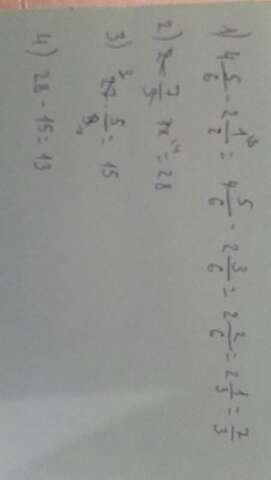 1) 4 5/6 - 2 1/2 = 4 5/6 - 2 3/6 = 2 2/6 = 2 1/3 = 7/3
2) 7/3 · = 28
3) 27 · 5/9 = 15
4) 28 - 15 = 13